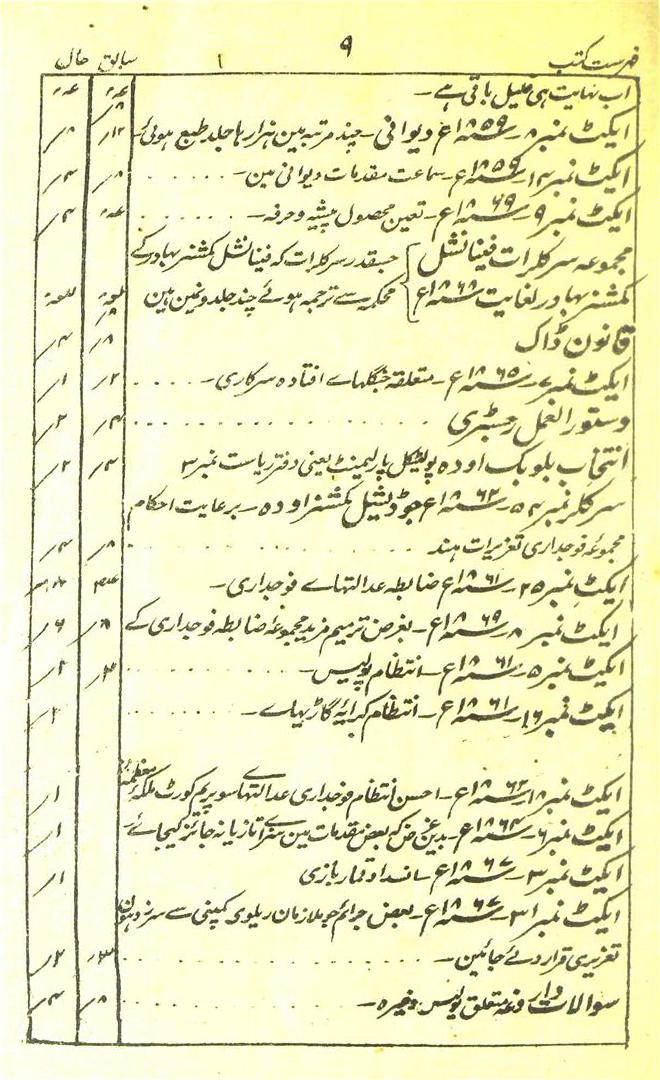 فہرست کتب ۹ ۱ سابق حال
اب نہایت ہی قلیل باقی ہے۔
ایکٹ نمبر ۸۔ ۱۸۵۹؁ع دیوانی۔ چند مرتبہ بین ہزارہا جلد طبع ہوئی ۱۲؍ ۸؍
ایکٹ نمبر ۱۴۔ ۱۸۵۹؁ع۔ سماعت مقدمات دیوانی مین۔ ۸؍ ۴؍
ایکٹ نمبر ۹۔ ۱۸۶۹؁ع۔ تعین محصول پیشہ وحرفہ۔ ۴؍
مجموعہ سرکلرات فینانشل حسبقدر سرکلرات کہ فینانشل کمشنر بہادر کے
کمشنر بہادر لغایت ۱۸۶۸؁ع محکمہ سے ترجمہ ہوئے چند جلدونمین ہین
قانون ڈاک ۸؍ ۴؍
ایکٹ نمبر ۷۔ ۱۸۶۵؁ع۔ متعلقہ جنگلہاے افتادہ سرکاری۔ ۲؍ ۱؍
دستور العمل رجسٹری ۴؍ ۲؍
انتخاب بلوبک اودہ پولٹیکل پارلیمنٹ یعنی دفتر ریاست نمبر ۳ ۴؍ ۲؍
سرکلر نمبر ۵۴۔ ۱۸۶۲؁ع جوڈیشیل کمشنر اودہ۔ برعایت احکام
مجموعہ فوجداری تعزیرات ہند ۸؍ ۴؍
ایکٹ نمبر ۲۵۔ ۱۸۶۱؁ع ضابطہ عدالتہاے فوجداری۔
ایکٹ نمبر ۸۔ ۱۸۶۹؁ع۔ بغرض ترمیم مزید مجموعہ ضابطہ فوجداری کے ۸؍ ۶؍
ایکٹ نمبر ۵۔ ۱۸۶۱؁ع۔ انتظام پولیس۔ ۳؍ ۲؍
ایکٹ نمبر ۱۶۔ ۱۸۶۱؁ع۔ انتظام کرایہ گاڑیہاے۔ ۲؍
ایکٹ نمبر ۱۸۔ ۱۸۶۲؁ع۔ احسن انتظام فوجداری عدالتہاے سوپریم کورٹ ملکہ معظمہ ۱؍
ایکٹ نمبر ۶۔ ۱۸۶۴؁ع۔ بدین غرض کہ بعض مقدمات مین سزاے تازیانہ جائز کیجائے۔ ۱؍
ایکٹ نمبر ۳۔ ۱۸۶۷؁ع۔ انسداد قماربازی ۱؍
ایکٹ نمبر ۳۱۔ ۱۸۶۷؁ع۔ بعض جرائم جو ملازمان ریلوی کمپنی سے سرزد ہون
تعزیری قرار دئے جائین۔ ۳؍ ۲؍
سوالات داروغہ متعلق پولیس وغیرہ۔ ۸؍ ۴؍